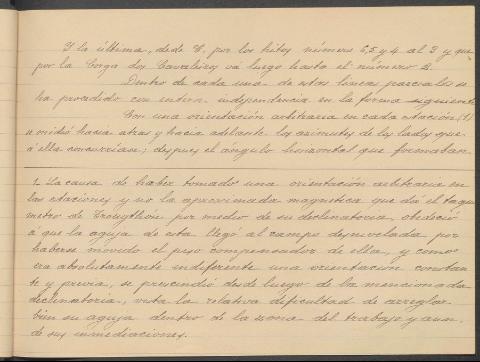 Y la última, desde C. por los hitos número 6, 5 y 4 al 3 y que
por la Corga dos Cavaleiros vá luego hasta el número 2.
Dentro de cada una de estas lineas parciales se
ha procedido con entera independencia en la forma siguiente
Con una orientación arbitraria en cada estación (1)
se midió hacia atras y hacia adelante los azimutes de los lados que
á ella concurrian; despues el ángulo horizontal que formaban
1. La causa de haber tomado una orientación arbitraria en
las estaciones y no la aproximada magnetica que dá el taqui
metro de Troughton por medio de su declinatoria, obedeció
á que la aguja de esta llegó al campo desnivelada por
haberse movido el peso compensador de ella, y como
era absolutamente indiferente una orientación constan
te y previa, se prescindió desde luego de la mencionada
declinatoria, vista la relativa dificultad de arreglar
bien su aguja dentro de la zona del trabajo y aun
de sus inmediaciones.